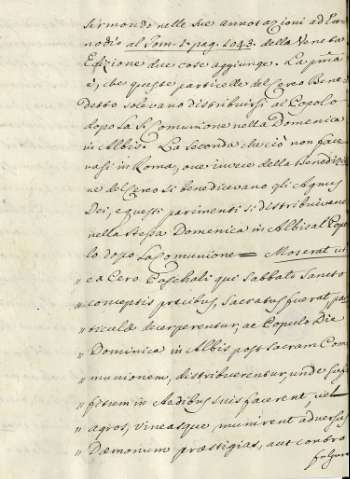 Sirmondo nelle sue annotazioni ad En-
nodio al Tom. 1. pag. 1043. della Veneta
Edizione due cose aggiunge. La prima
è, che queste particelle del Cereo Bene-
detto solevano distribuirsi al Popolo
dopo la S. Comunione nella Domenica
in Albis. La seconda che ciò non face-
vasi in Roma, ove invece della benedizio-
ne del Cereo si benedicevano gli Agnus
Dei, e questi parimenti si distribuivano
nella stessa Domenica in Albis al Popo-
lo dopo la Comunione = Mos erat ut
" ea Cero Paschali qui Sabbato Sancto
" conceptis precibus, Sacratus fuerat par
" ticulae decerperentur, ac Populo Die
" Dominica in Albis post Sacram Com
" munionem, distribuerentur, unde suf
" fitum in Aedibus suis facerent, vel
" agros, vineasque, munirent adversus
" Daemonum praestigias, aut contra
fulgura